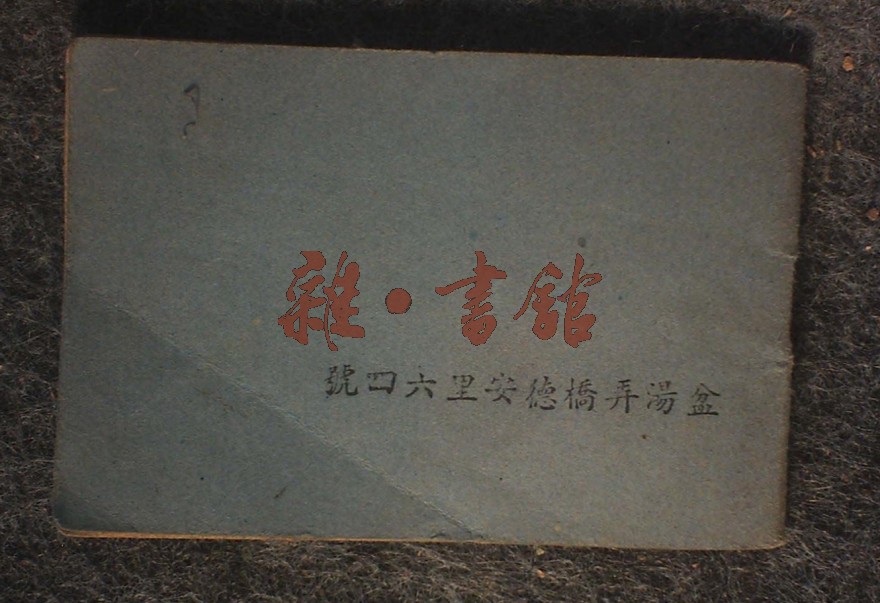 雜·書館
盆湯弄橋德安里六四號